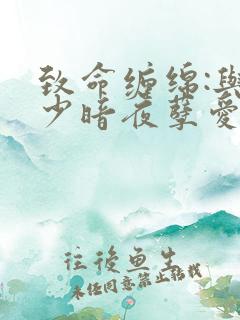 致命缠绵:与
少暗夜孽爱
往后鱼生
未经同意禁止转载